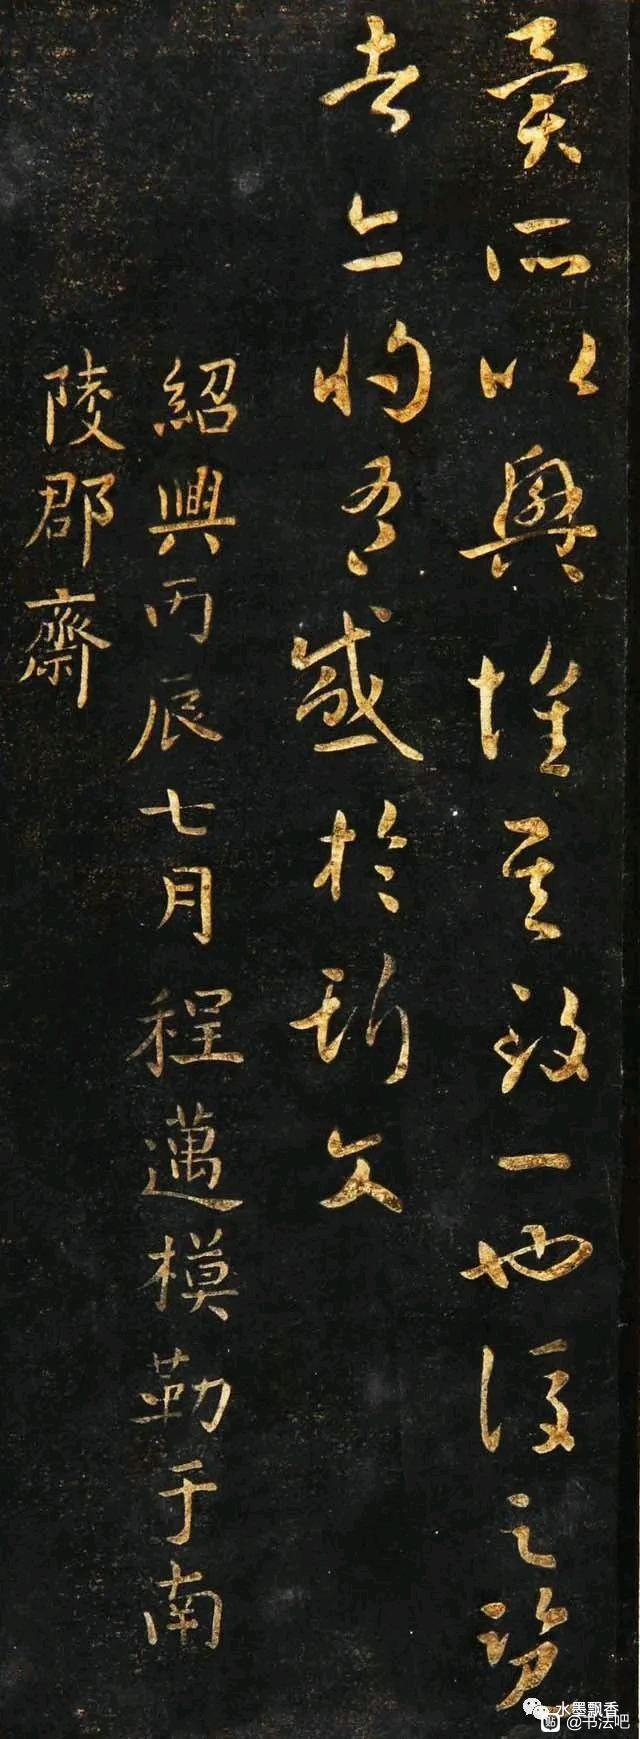 異所以興懷其致一也後之覽
者亦將有感於斯文
紹興丙辰七月程邁模勒于南
陵郡齋
水墨飘香
贴 @书法吧